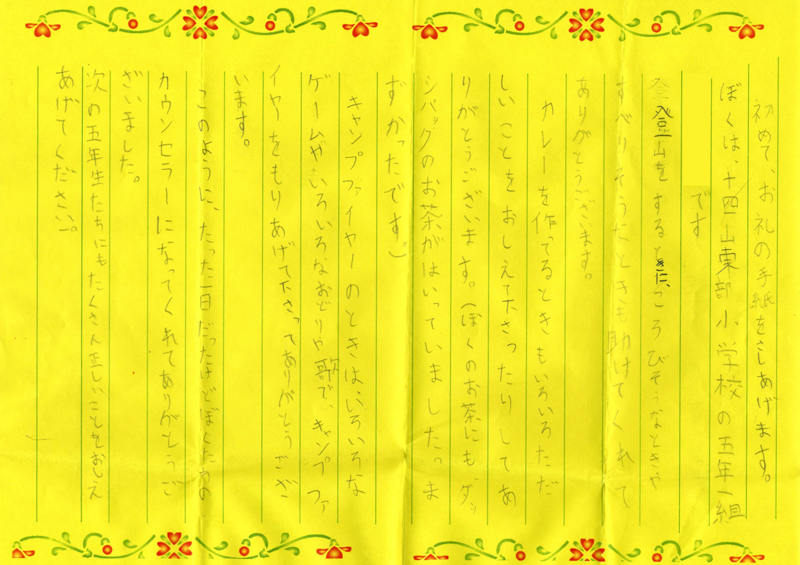 初めて、お礼の手紙をさしあげます。
ぼくは、十四山東部小学校の五年一組
です
登山をするときに、ころびそうなときや
すべりそうなときも助けてくれて
ありがとうございます。
カレーを作てるときもいろいろただ
しいことをおしえて下さったりしてあ
りがとうございます。(ぼくのお茶にも、ダッ
シパックのお茶がはいっていました。ま
ずかったです。)
キャンプファイヤーのときは、いろいろな
ゲームや、いろいろなおどりや歌で、キャンプファ
イヤーをもりあげて下さってありがとうござ
います。
このように、たった一日だったけどぼくたちの
カウンセラーになってくれてありがとうご
ざいました。
次の五年生たちにもたくさん正しいことをおしえ
あげてください。